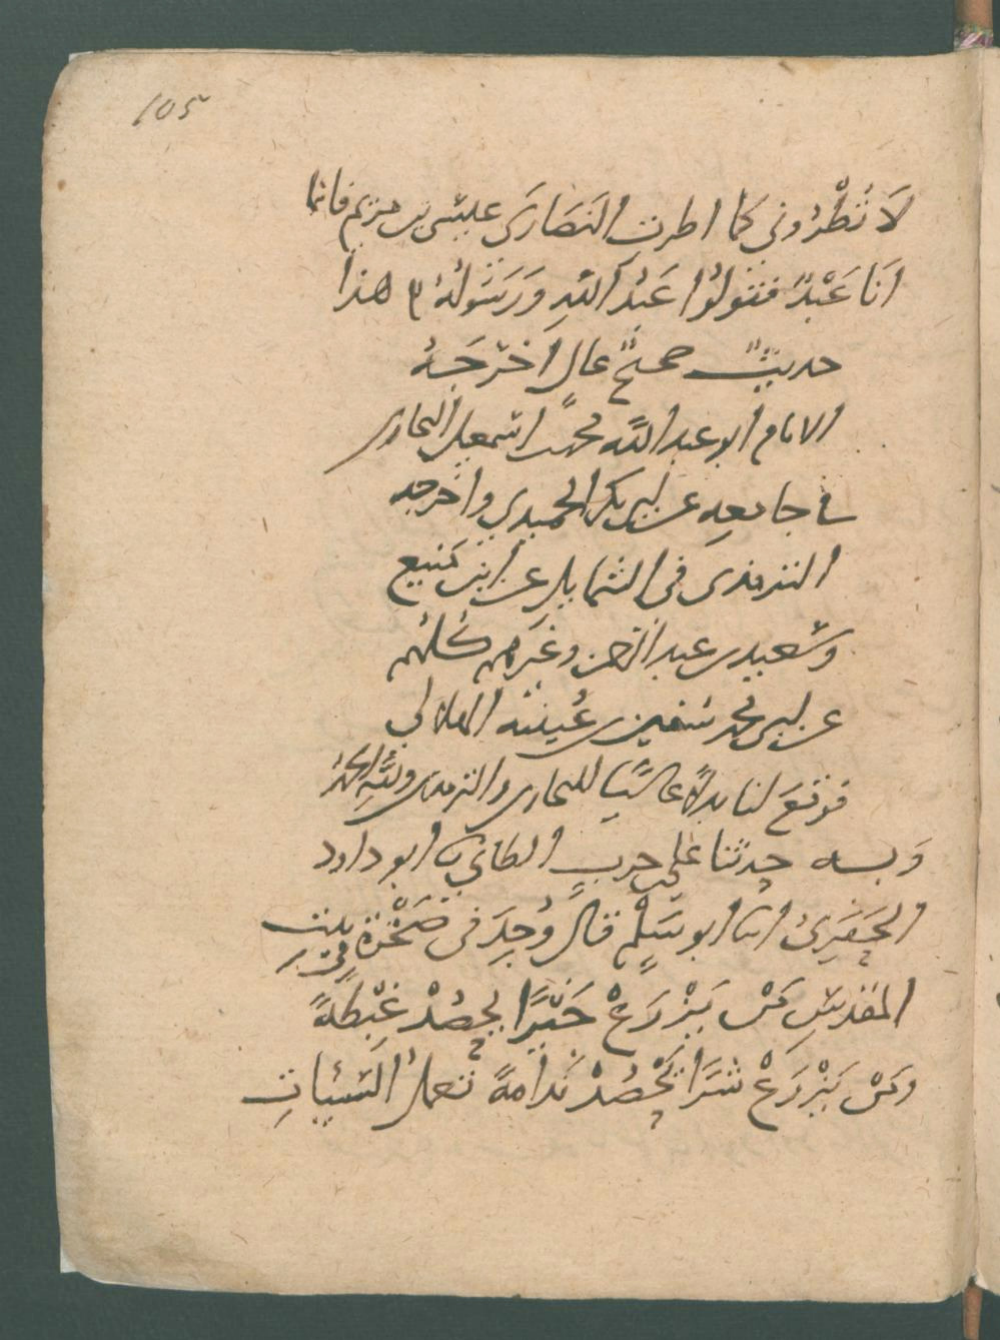 105
لَا تُطْرُوني كما اطرت النَصَارَى عيسى بن مريم فانما
اَنَا عَبْدٌ فقولُوا عَبْدُ اللهِ وَرَسُولُهُ م هذا
حديثٌ صحيحٌ عالٍ اَخْرَجَهُ
الامام ابو عبد الله محمد بن اسمعيل البخاري
في جامعه عن ابي بكر الحميدي واخرجه
الترمذي في الشمايل عن ابن مَنيع
وسَعيد بن عبد الرحمن وغيرهم كُلهُم
عن ابي محمد سفين بن عُيينه الهلالي
فوقعَ لنا بدلًا عاليًا للبخاري والترمذي وللهِ الحمدُ
وَبـه حدثنا علي بن حربٍ الطائي نا ابو داود
الحَفَرِيُ انا ابو سَلم قال وُجِدَ في صَخْرَةٍ في بيت
المقدسِ مَنْ يَزْرَعْ خَيْرًا يحصُدْ غِبْطةً
ومَنْ يَزْرَعْ شَرًا يَحْصُدْ نَدَامةً تعملُ السَيئاتِ